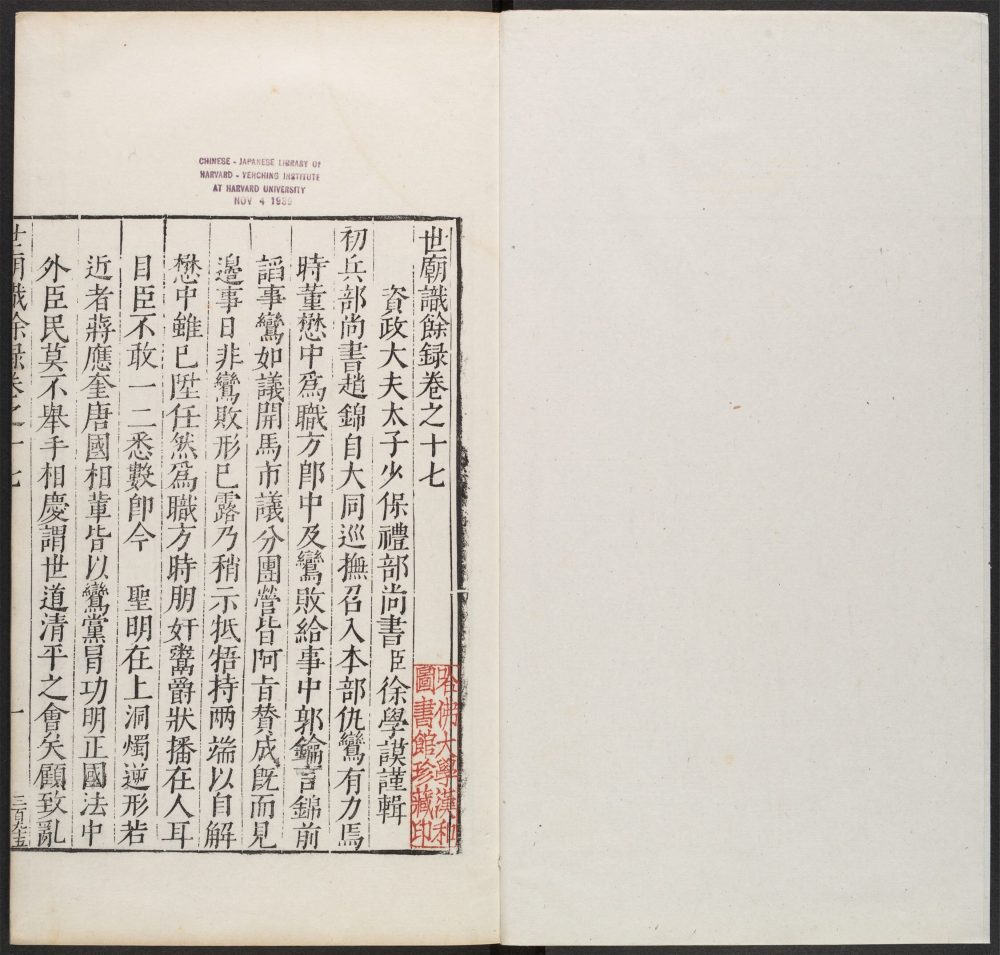 CHINESE - JAPANESE LIBRARY OF
HARVARD - YENCHING INSTITUTE
AT HARVARD UNIVERSITY
NOV 4 1939
世廟識餘録卷之十七
資政大夫太子少保禮部尚書臣徐學謨謹輯
初兵部尚書趙錦自大同巡撫召入本部仇鸞有力焉
時董懋中爲職方郎中及鸞敗給事中郭鑰言錦前
謟事鸞如議開馬市議分團營皆阿旨賛成旣而見
邉事日非鸞敗形已露乃稍示牴牾持兩端以自解
懋中雖已陞任然爲職方時朋奸鬻爵狀播在人耳
目臣不敢一二悉數卽今 聖明在上洞燭逆形若
近者蔣應奎唐國相輩皆以鸞黨冒功明正國法中
外臣民莫不舉手相慶謂世道清平之會矣顧致亂
世廟識餘録卷之十七
一
哈佛大學漢和
圖書館珍藏印